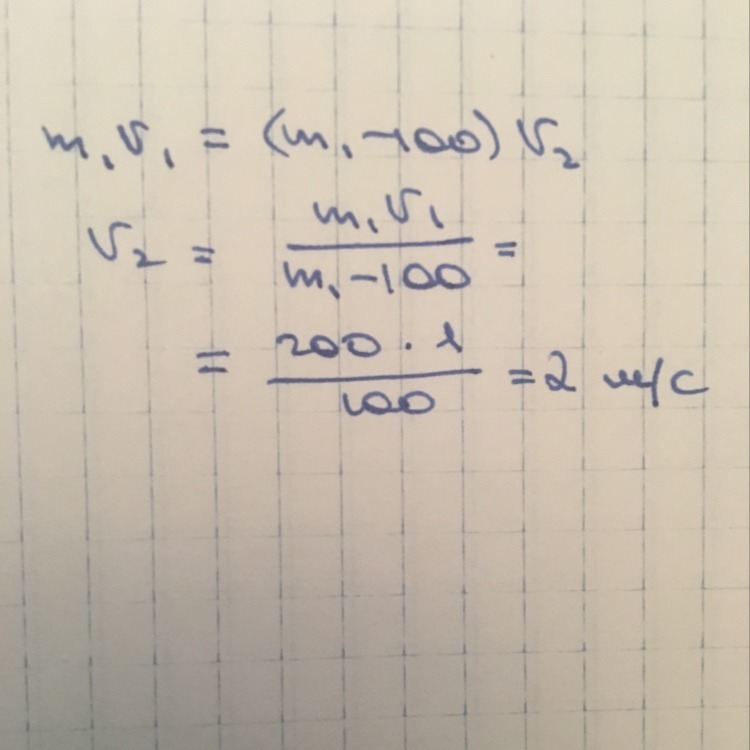 m₁v₁ = (m₁-100) v₂
v₂ = m₁v₁ / m₁-100 =
= 200 · 1 / 100 = 2 м/с